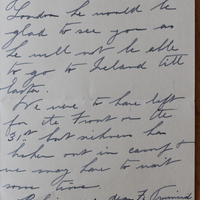 London he would be
glad to see you as
he will not be able
to go to Ireland till
Easter.
We were to have left
for the Front on the
31st but sickness has
broken out in camp &
we may have to wait
some time.
dear Fr